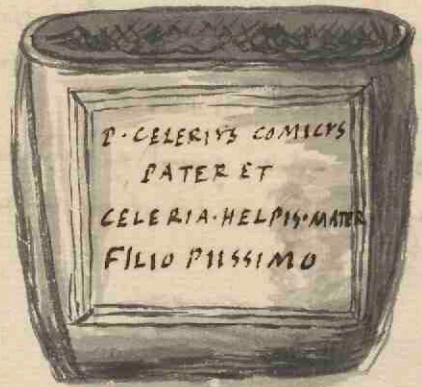 P·CELERIVS COMICVS
PATER ET
CELERIA·HELPIS·MATER
FILIO PIISSIMO